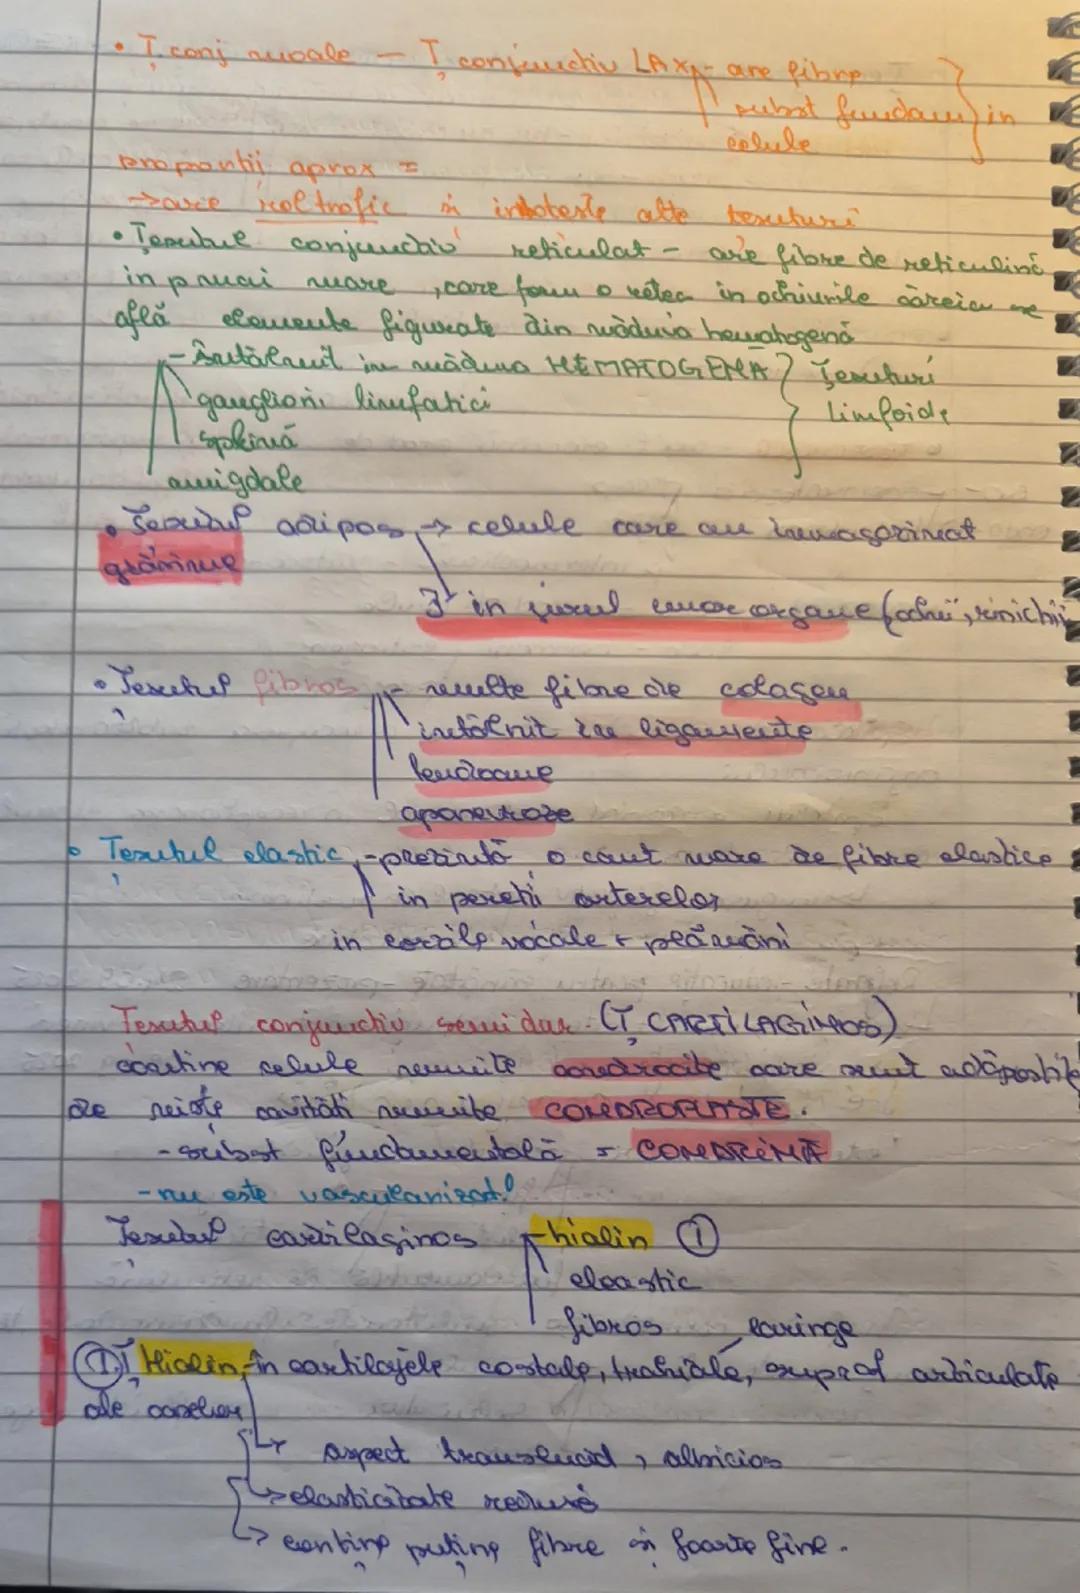 • Ț. conj moale — Ț. conjunctiv LAX - are fibre
subst fundam } in
celule
proportii aprox =
→ are rol trofic și insoteste alte tesuturi
• Țesutul conjunctiv reticulat - are fibre de reticulină
in p mai mare, care form o retea in ochiurile căreia se
află elemente figurate din măduva hematogenă
- Întâlnit in măduva HEMATOGENA } Țesuturi
ganglioni limfatici limfoide
splină
amigdale
• Țesutul adipos → celule care au inmagazinat
grăsime
in jurul unor organe (ochii, rinichii
• Țesutul fibros - multe fibre de colagen
intâlnit in ligamente
tendoane
aponevroze
• Țesutul elastic - prezintă o cant mare de fibre elastice
in pereti arterelor
in corzile vocale + plămâni
Țesutul conjunctiv semi dur (Ț CARTILAGINOS)
contine celule numite condrocite care sunt adăpostite
de niște cavităti numite CONDROPLASTE.
- subst fundamentală = CONDRINĂ
- nu este vascularizat!
Țesutul cartilaginos - hialin ①
eleastic
fibros
laringe
① Ț Hialin - în cartilajele costale, traheale, supraf articulate
ale oaselor
↳ aspect translucid, albicios
↳ elasticitate redusă
↳ contine putine fibre și foarte fine.